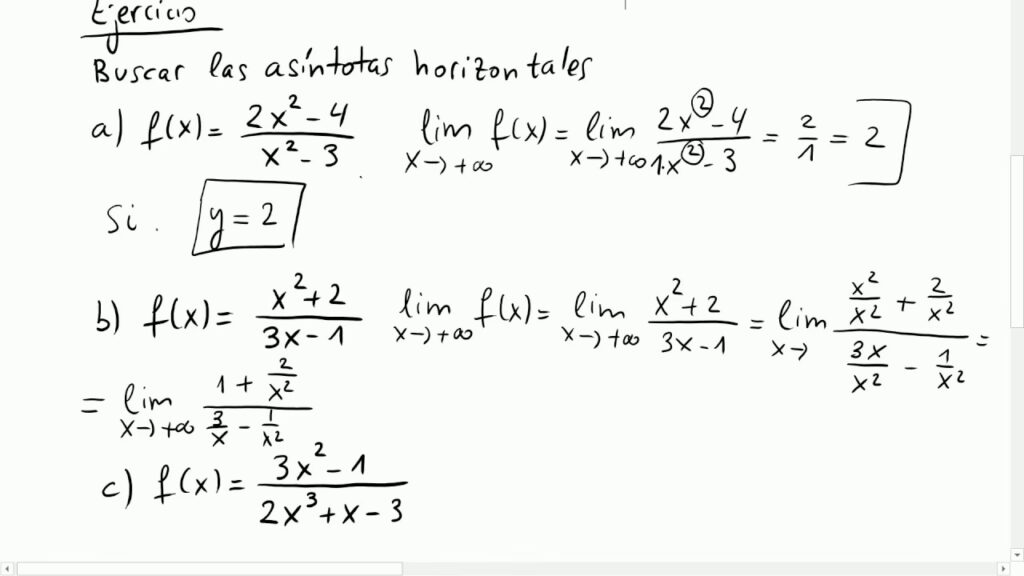 Ejercicio
Buscar las asíntotas horizontales
a) f(x) = (2x² - 4)/(x² - 3)   lim x→+∞ f(x) = lim x→+∞ (2x² - 4)/(1·x² - 3) = 2/1 = 2
Si. y = 2
b) f(x) = (x² + 2)/(3x - 1)   lim x→+∞ f(x) = lim x→+∞ (x² + 2)/(3x - 1) = lim x→ (x²/x² + 2/x²)/(3x/x² - 1/x²) =
= lim x→+∞ (1 + 2/x²)/(3/x - 1/x²)
c) f(x) = (3x² - 1)/(2x³ + x - 3)